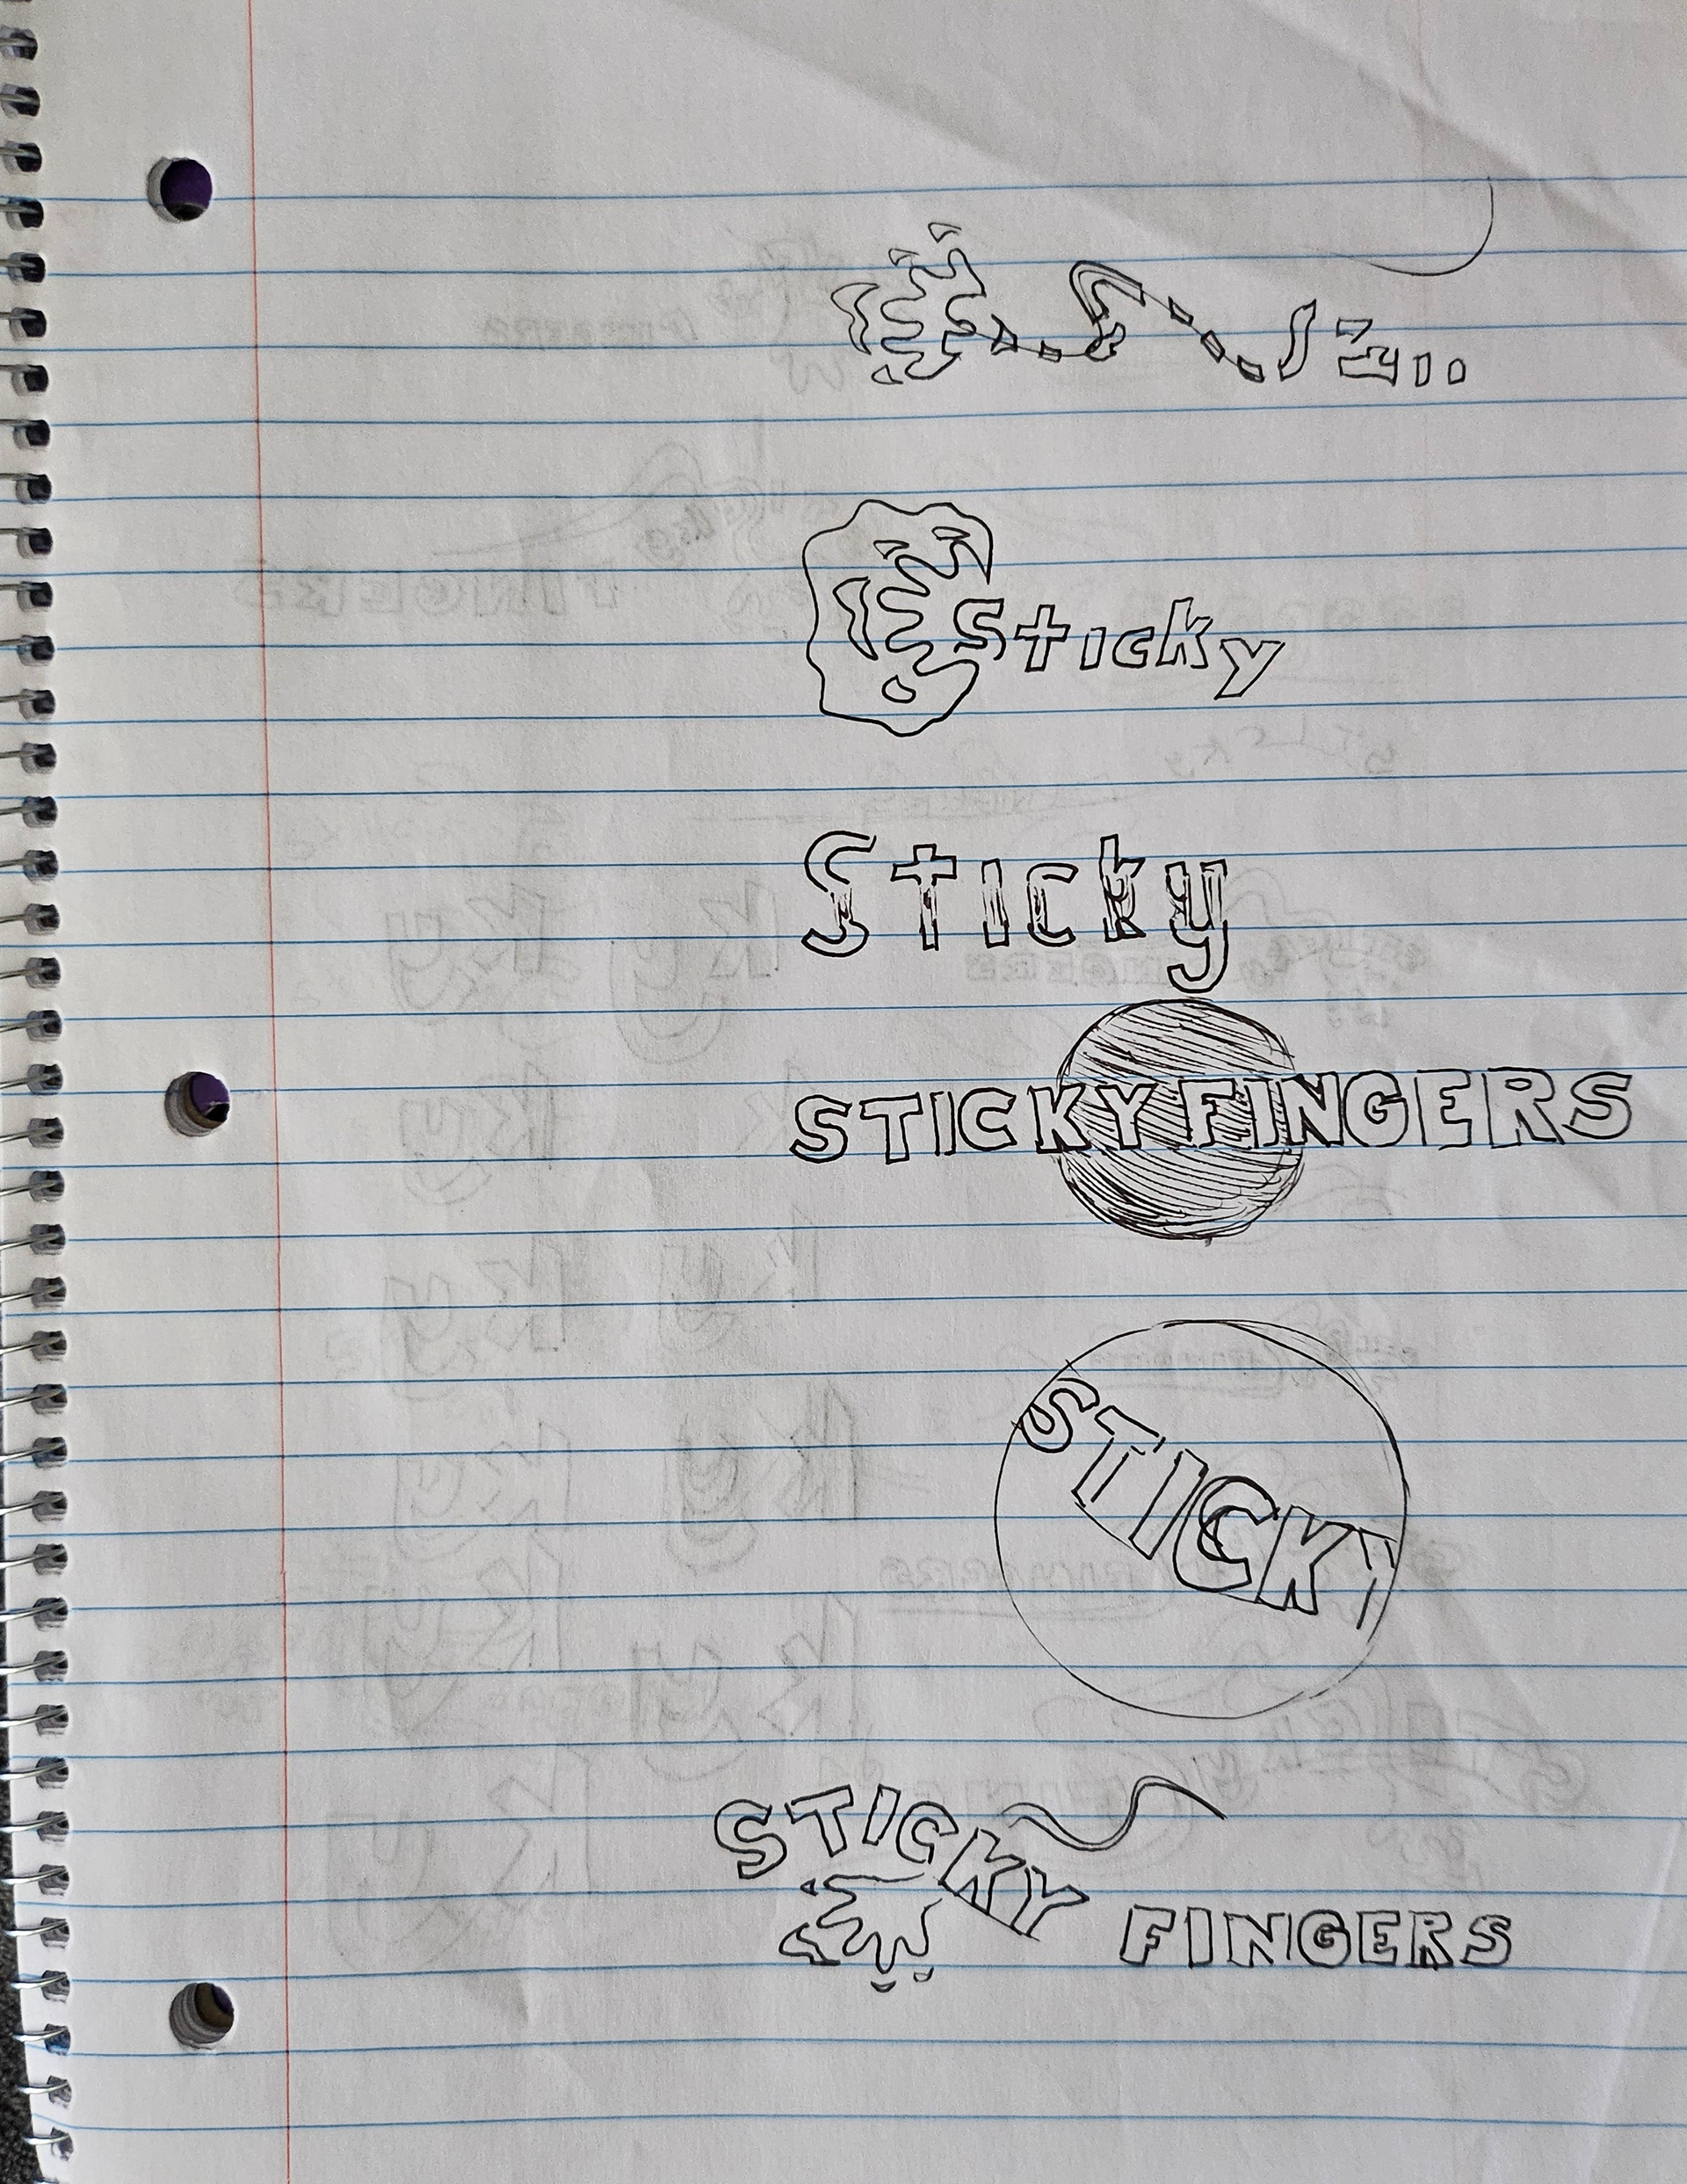 Sticky
Sticky
STICKYFINGERS
STICKY
STICKY
FINGERS